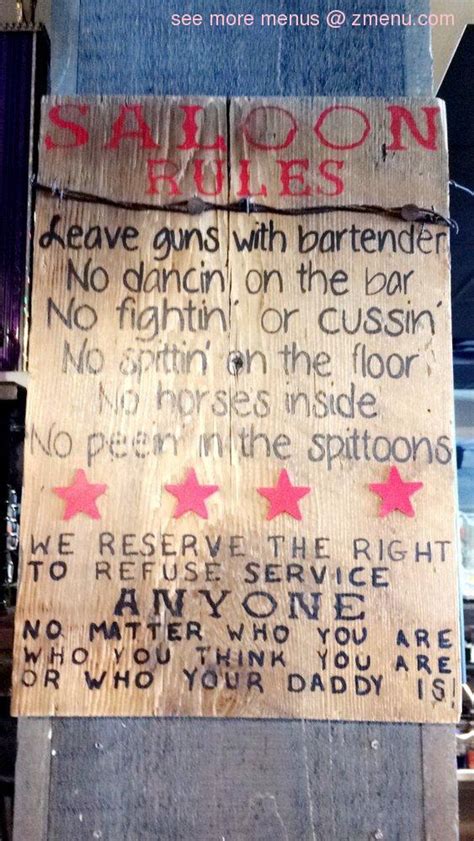 see more menus @ zmenu.com
SALOON
RULES
Leave guns with bartender
No dancin' on the bar
No fightin' or cussin'
No spittin' on the floor
No horses inside
No peein' in the spittoons
WE RESERVE THE RIGHT
TO REFUSE SERVICE
ANYONE
NO MATTER WHO YOU ARE
WHO YOU THINK YOU ARE
OR WHO YOUR DADDY IS!